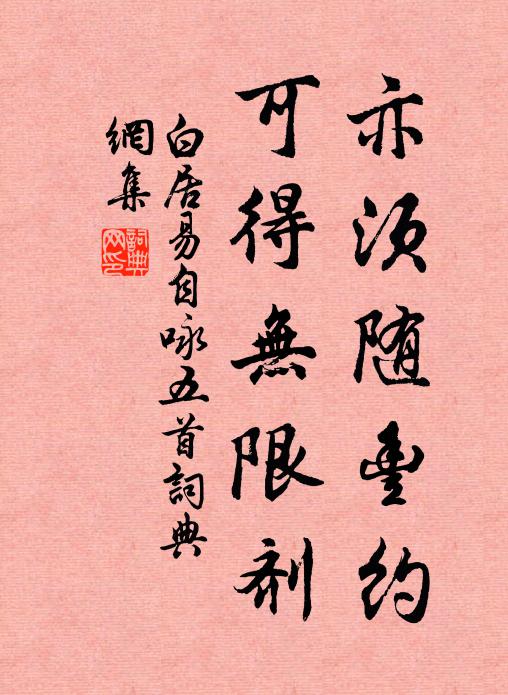 亦須随豐約
可得無限剂
白居易自咏五首詞典
網集
詞典网印